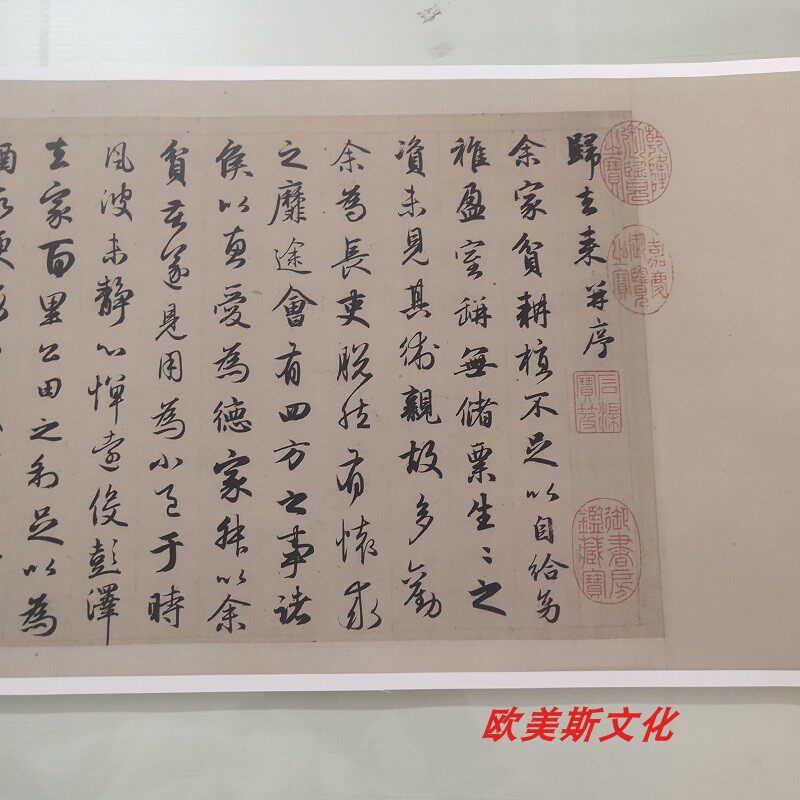 乾隆御覽之寶
嘉慶御覽之寶
歸去来并序
石渠寶笈
御書房鑑藏寶
余家貧耕植不足以自給幼
稚盈室缾無儲粟生〻之
資未見其術親故多勸
余為長吏脱然有懷求
之靡途會有四方之事諸
侯以惠愛為德家叔以余
貧苦遂見用為小邑于時
風波未靜心憚遠役彭澤
去家百里公田之利足以為
欧美斯文化